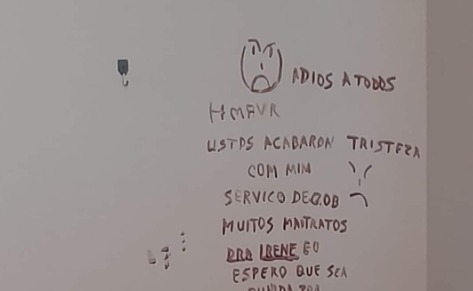 ADIOS A TODOS
USTDS ACABARON TRISTEZA
COM MIM
SERVICO DEGOB
MUITOS MAITRATOS
DRA IRENE EU
ESPERO QUE SEA